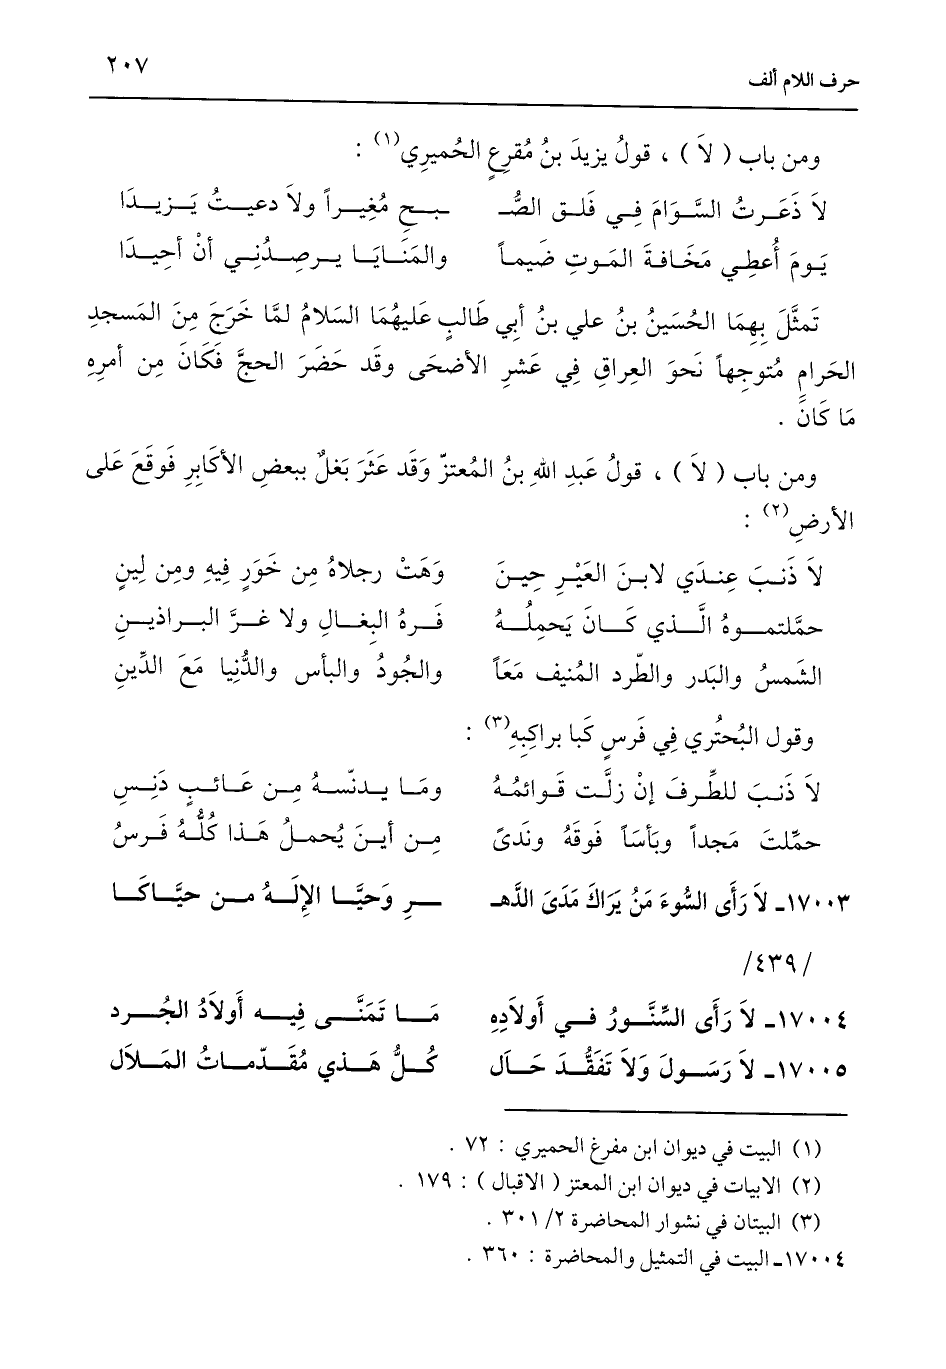 ٢٠٧
حرف اللام ألف
ومن باب ( لاَ ) ، قولُ يزيدَ بنُ مُقرِعٍ الحُميرِي(١) :
لاَ ذَعَرتُ السَّوَامَ فِي فَلَق الصُّـ ـبحِ مُغيراً ولاَ دعيتُ يَزيدَا
يَومَ أُعطِي مَخَافةَ المَوتِ ضَيماً والمَنَايَا يرصِدُنِي أنْ أحِيدَا
تَمثَّلَ بِهِمَا الحُسَينُ بنُ علي بنُ أبي طَالبٍ عَليهُمَا السَلامُ لمَّا خَرَجَ مِنَ المَسجدِ
الحَرامِ مُتوجِهاً نَحوَ العِراقِ فِي عَشرِ الأضحَى وقَد حَضَرَ الحجَّ فَكَانَ مِن أمرهِ
مَا كَانَ .
ومن باب ( لاَ ) ، قولُ عَبدِ اللهِ بنُ المُعتزّ وَقَد عَثَرَ بَغلٌ ببعضِ الأكَابِرِ فَوقَعَ عَلى
الأرضِ(٢) :
لاَ ذَنبَ عِندَي لابنَ العَيْرِ حِينَ وَهَتْ رجلاهُ مِن خَوَرٍ فِيهِ ومِن لِينٍ
حمَّلتموهُ الَّذي كَانَ يَحمِلُهُ فَرهُ البِغَالِ ولا غرَّ البراذينِ
الشَمسُ والبَدر والطّرد المُنيف مَعَاً والجُودُ والبأس والدُّنيا مَعَ الدِّينِ
وقول البُحتُري فِي فَرَسٍ كَبا براكِبِهِ(٣) :
لاَ ذَنَبَ للطِّرفَ إنْ زلَّت قَوائمُهُ ومَا يدنّسهُ مِن عَائبٍ دَنِسِ
حمَّلتَ مَجداً وبَأسَاً فَوقَهُ ونَدىً مِن أينَ يُحملُ هَذا كُلُّهُ فَرسُ
١٧٠٠٣ـ لاَ رَأى السُّوءَ مَنُ يَراكَ مَدَىَ الدَّهـ ـرِ وَحيَّا الإلَهُ من حيَّاكَا
/٤٣٩/
١٧٠٠٤ـ لاَ رَأَى السِّنَّورُ في أَولاَدِهِ مَا تَمَنَّى فِيه أَولاَدُ الجُرد
١٧٠٠٥ـ لاَ رَسَولَ وَلاَ تَفَقُّدَ حَال كُلُّ هَذي مُقَدّماتُ المَلاَل
(١) البيت في ديوان ابن مفرغ الحميري : ٧٢ .
(٢) الابيات في ديوان ابن المعتز ( الاقبال ) : ١٧٩ .
(٣) البيتان في نشوار المحاضرة ٢/ ٣٠١ .
١٧٠٠٤ـ البيت في التمثيل والمحاضرة : ٣٦٠ .